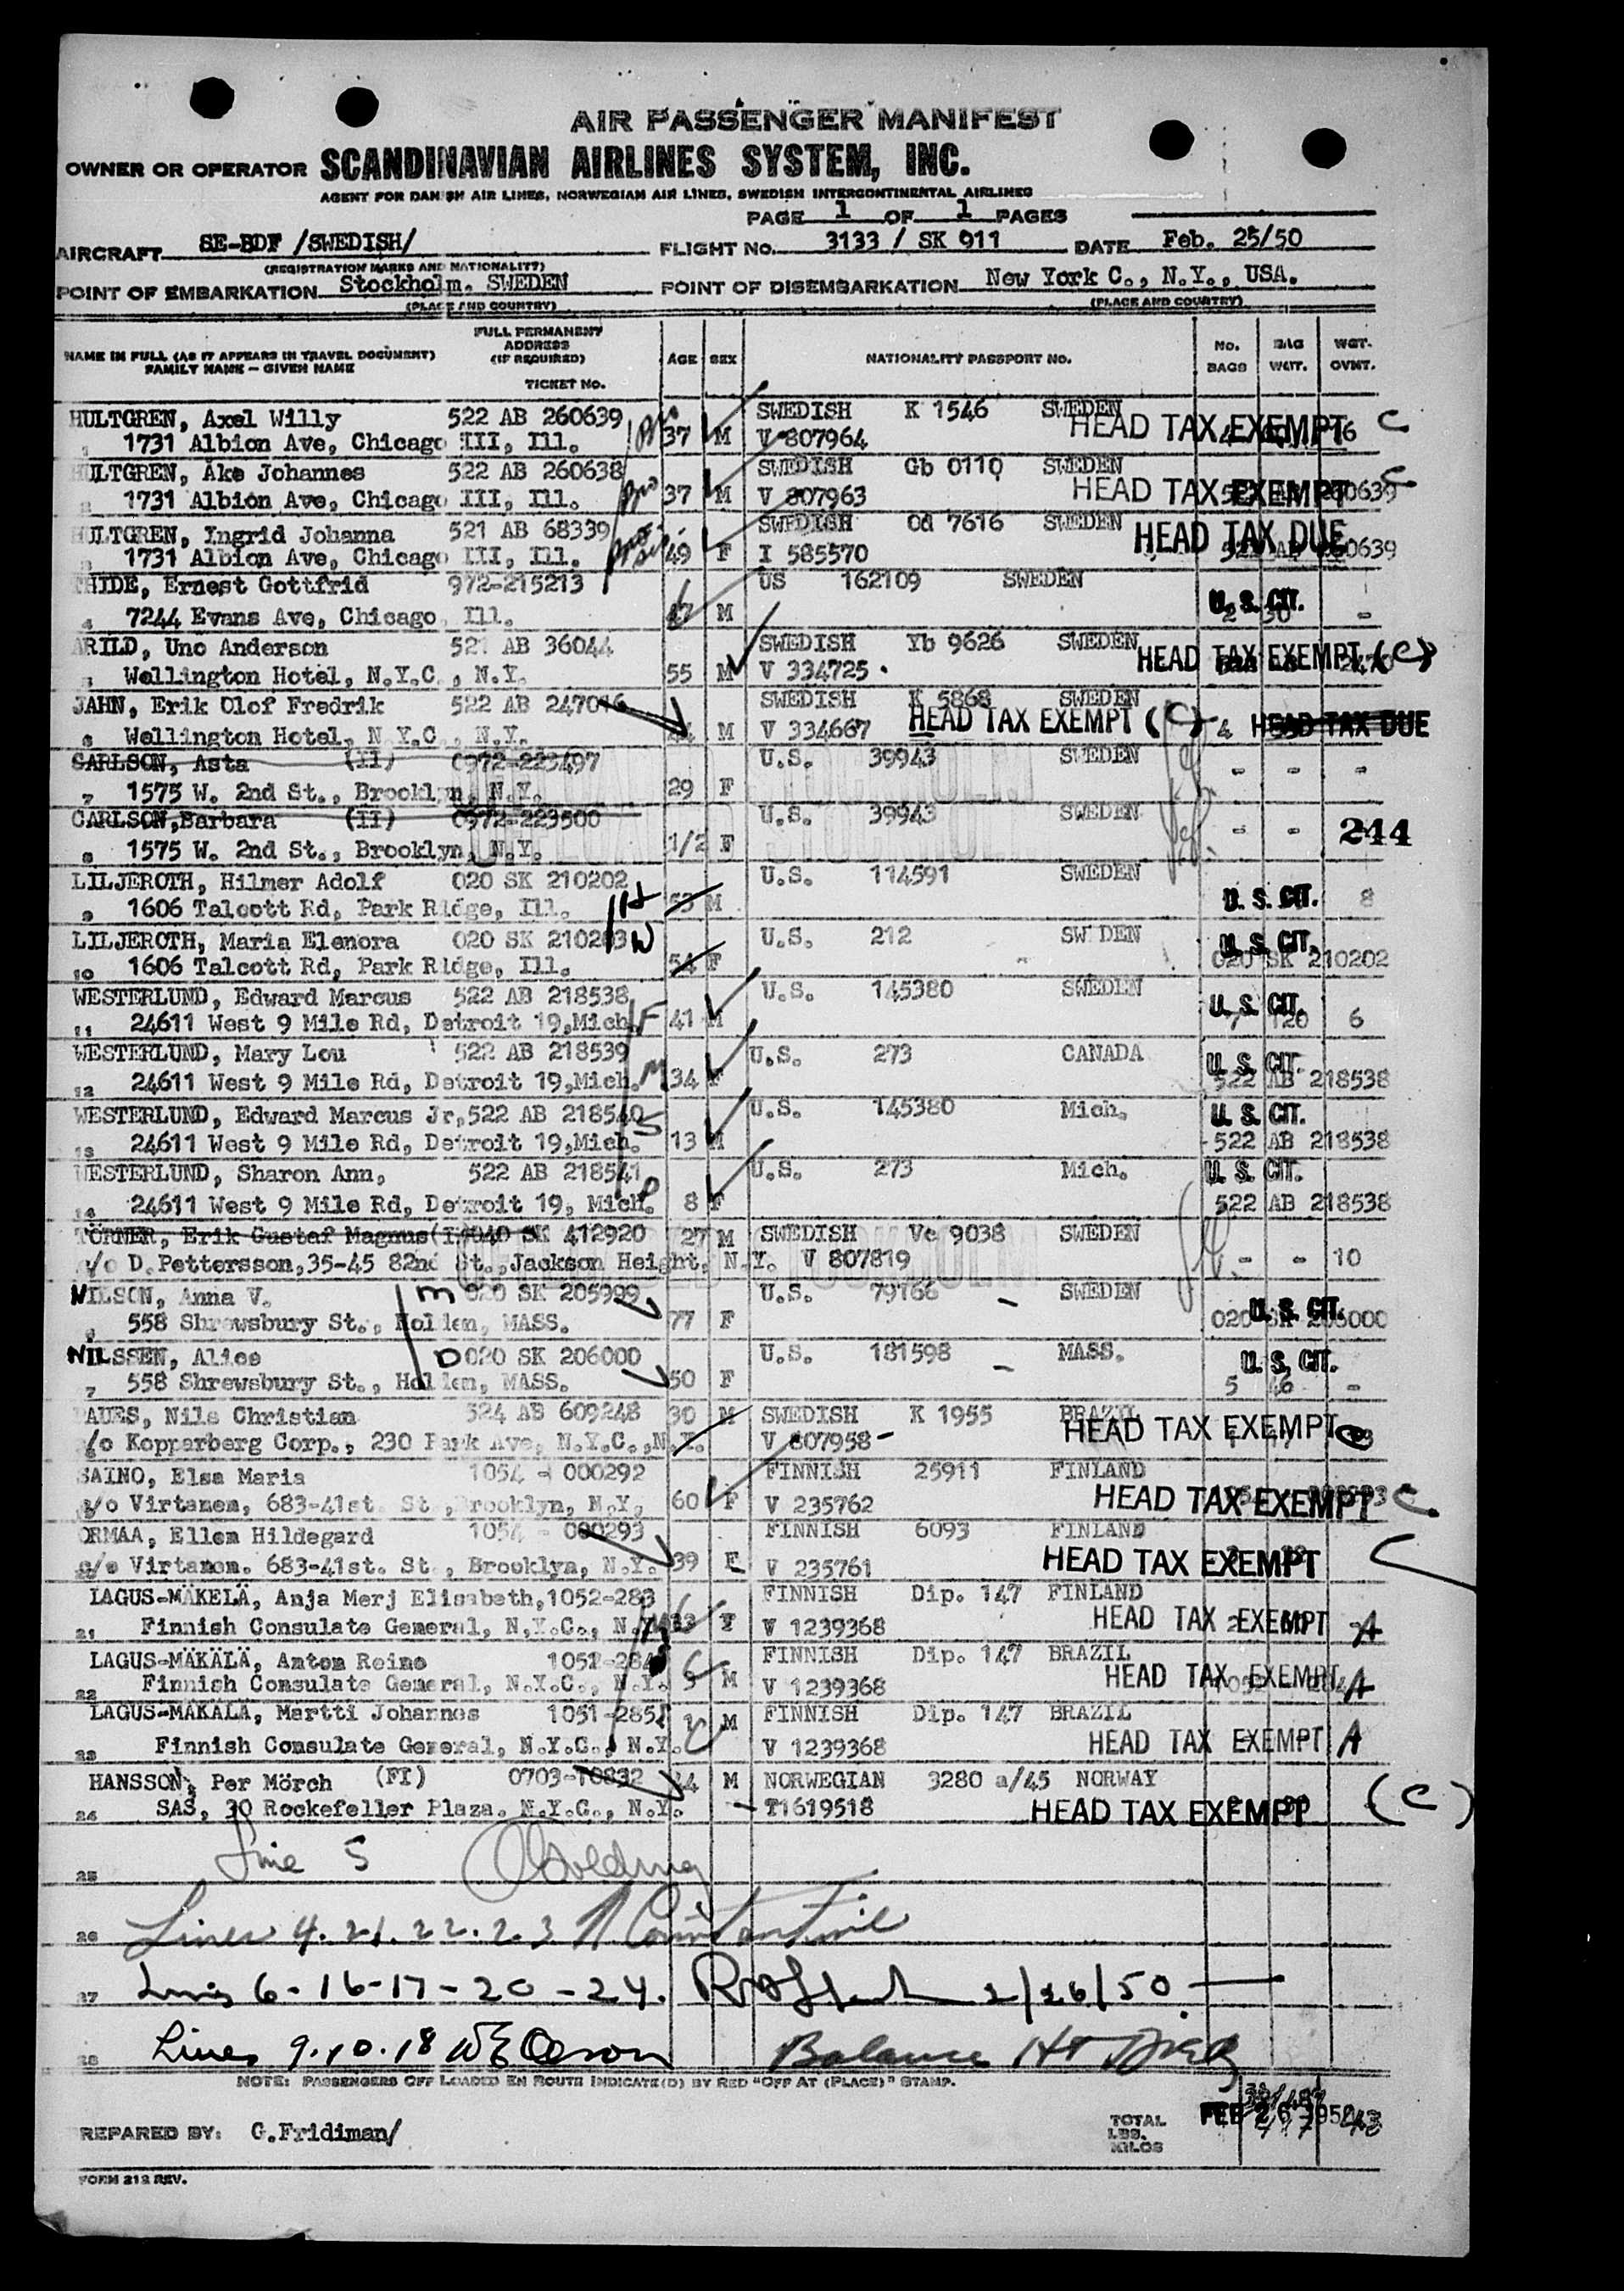 AIR PASSENGER MANIFEST
OWNER OR OPERATOR SCANDINAVIAN AIRLINES SYSTEM, INC.
AGENT FOR DANISH AIR LINES, NORWEGIAN AIR LINES, SWEDISH INTERCONTINENTAL AIRLINES
PAGE 1 OF 1 PAGES
AIRCRAFT SE-BDF /SWEDISH/ FLIGHT No. 3133 / SK 911 DATE Feb. 25/50
(REGISTRATION MARKS AND NATIONALITY)
POINT OF EMBARKATION Stockholm. SWEDEN POINT OF DISEMBARKATION New York C., N.Y., USA.
(PLACE AND COUNTRY) (PLACE AND COUNTRY)
NAME IN FULL (AS IT APPEARS IN TRAVEL DOCUMENT) FAMILY NAME – GIVEN NAME FULL PERMANENT ADDRESS (IF REQUIRED) TICKET No. AGE SEX NATIONALITY PASSPORT NO. No. BAGS BAG WGT. WGT. OVNT.
HULTGREN, Axel Willy 522 AB 260639 SWEDISH K 1546 SWEDEN HEAD TAX EXEMPT C
1731 Albion Ave, Chicago III, Ill. 37 M V 807964
HULTGREN, Åke Johannes 522 AB 260638 SWEDISH Gb 0110 SWEDEN
1731 Albion Ave, Chicago III, Ill. 37 M V 807963 HEAD TAX EXEMPT C
HULTGREN, Ingrid Johanna 521 AB 68339 SWEDISH Od 7616 SWEDEN HEAD TAX DUE
1731 Albion Ave, Chicago III, Ill. 49 F I 585570
THIDE, Ernest Gottfrid 972-215213 US 162109 SWEDEN U. S. CIT.
4 7244 Evans Ave, Chicago, Ill. M 2 30 -
ARILD, Uno Anderson 521 AB 36044 SWEDISH Yb 9626 SWEDEN HEAD TAX EXEMPT (C)
Wellington Hotel, N.Y.C., N.Y. 55 M V 334725
JAHN, Erik Olof Fredrik 522 AB 247016 SWEDISH K 5868 SWEDEN
6 Wellington Hotel, N.Y.C., N.Y. M V 334667 HEAD TAX EXEMPT (C) 4 HEAD TAX DUE
CARLSON, Asta (II) 0972-223497 U.S. 39943 SWEDEN
7 1575 W. 2nd St., Brooklyn, N.Y. 29 F - - -
CARLSON, Barbara (II) 0972-223500 U.S. 39943 SWEDEN
8 1575 W. 2nd St., Brooklyn, N.Y. 1/2 F - - 244
LILJEROTH, Hilmer Adolf 020 SK 210202 U.S. 114591 SWEDEN
9 1606 Talcott Rd, Park Ridge, Ill. H 53 M U. S. CIT. 8
LILJEROTH, Maria Elenora 020 SK 210203 W U.S. 212 SW DEN U. S. CIT.
10 1606 Talcott Rd, Park Ridge, Ill. 54 F 020 SK 210202
WESTERLUND, Edward Marcus 522 AB 218538 U.S. 145380 SWEDEN U. S. CIT.
11 24611 West 9 Mile Rd, Detroit 19,Mich. F 41 M 7 120 6
WESTERLUND, Mary Lou 522 AB 218539 U.S. 273 CANADA U. S. CIT.
12 24611 West 9 Mile Rd, Detroit 19,Mich. M 34 F 522 AB 218538
WESTERLUND, Edward Marcus Jr, 522 AB 218540 S U.S. 145380 Mich. U. S. CIT.
13 24611 West 9 Mile Rd, Detroit 19,Mich. 13 M 522 AB 218538
WESTERLUND, Sharon Ann, 522 AB 218541 U.S. 273 Mich. U. S. CIT.
14 24611 West 9 Mile Rd, Detroit 19, Mich. D 8 F 522 AB 218538
TÖRNER, Erik Gustaf Magnus SK 412920 27 M SWEDISH Vc 9038 SWEDEN
c/o D.Pettersson,35-45 82nd St.,Jackson Height, N.Y. V 807819 - - 10
NILSON, Anna V. m 020 SK 205999 U.S. 79166 SWEDEN U. S. CIT.
558 Shrewsbury St., Holden, MASS. 77 F 020 SK 206000
NILSSEN, Alice D 020 SK 206000 U.S. 181598 MASS. U. S. CIT.
7 558 Shrewsbury St., Holden, MASS. 50 F 5 46 -
PAUES, Nils Christian 524 AB 609248 30 M SWEDISH K 1955 BRAZIL HEAD TAX EXEMPT
c/o Kopparberg Corp., 230 Park Ave, N.Y.C.,N.Y. V 807958
SAINO, Elsa Maria 1054 - 000292 FINNISH 25911 FINLAND
c/o Virtanen, 683-41st. St., Brooklyn, N.Y. 60 F V 235762 HEAD TAX EXEMPT C.
ORMAA, Ellen Hildegard 1054 - 000293 FINNISH 6093 FINLAND
c/o Virtanen. 683-41st. St., Brooklyn, N.Y. 39 F V 235761 HEAD TAX EXEMPT C
LAGUS-MÄKELÄ, Anja Merj Elisabeth, 1052-283 FINNISH Dip. 147 FINLAND
21 Finnish Consulate General, N.Y.C., N.Y. 33 F V 1239368 HEAD TAX EXEMPT A
LAGUS-MÄKÄLÄ, Anton Reino 1051-284 FINNISH Dip. 147 BRAZIL
22 Finnish Consulate General, N.Y.C., N.Y. M V 1239368 HEAD TAX EXEMPT A
LAGUS-MÄKÄLÄ, Martti Johannes 1051-285 M FINNISH Dip. 147 BRAZIL
23 Finnish Consulate General, N.Y.C., N.Y. V 1239368 HEAD TAX EXEMPT A
HANSSON, Per Mörch (FI) 0703-10832 M NORWEGIAN 3280 a/45 NORWAY
24 SAS, 30 Rockefeller Plaza. N.Y.C., N.Y. T1619518 HEAD TAX EXEMPT (C)
25 Line 5
26 Lines 4. 21. 22. 23
27 Lines 6-16-17-20-24. 2/26/50
28 Lines 9.10.18 Balance
NOTE: PASSENGERS OFF LOADED EN ROUTE INDICATE(D) BY RED "OFF AT (PLACE)" STAMP.
REPARED BY: G.Fridiman/ TOTAL LBS. KILOS FEB 26 1950
FORM 212 REV.